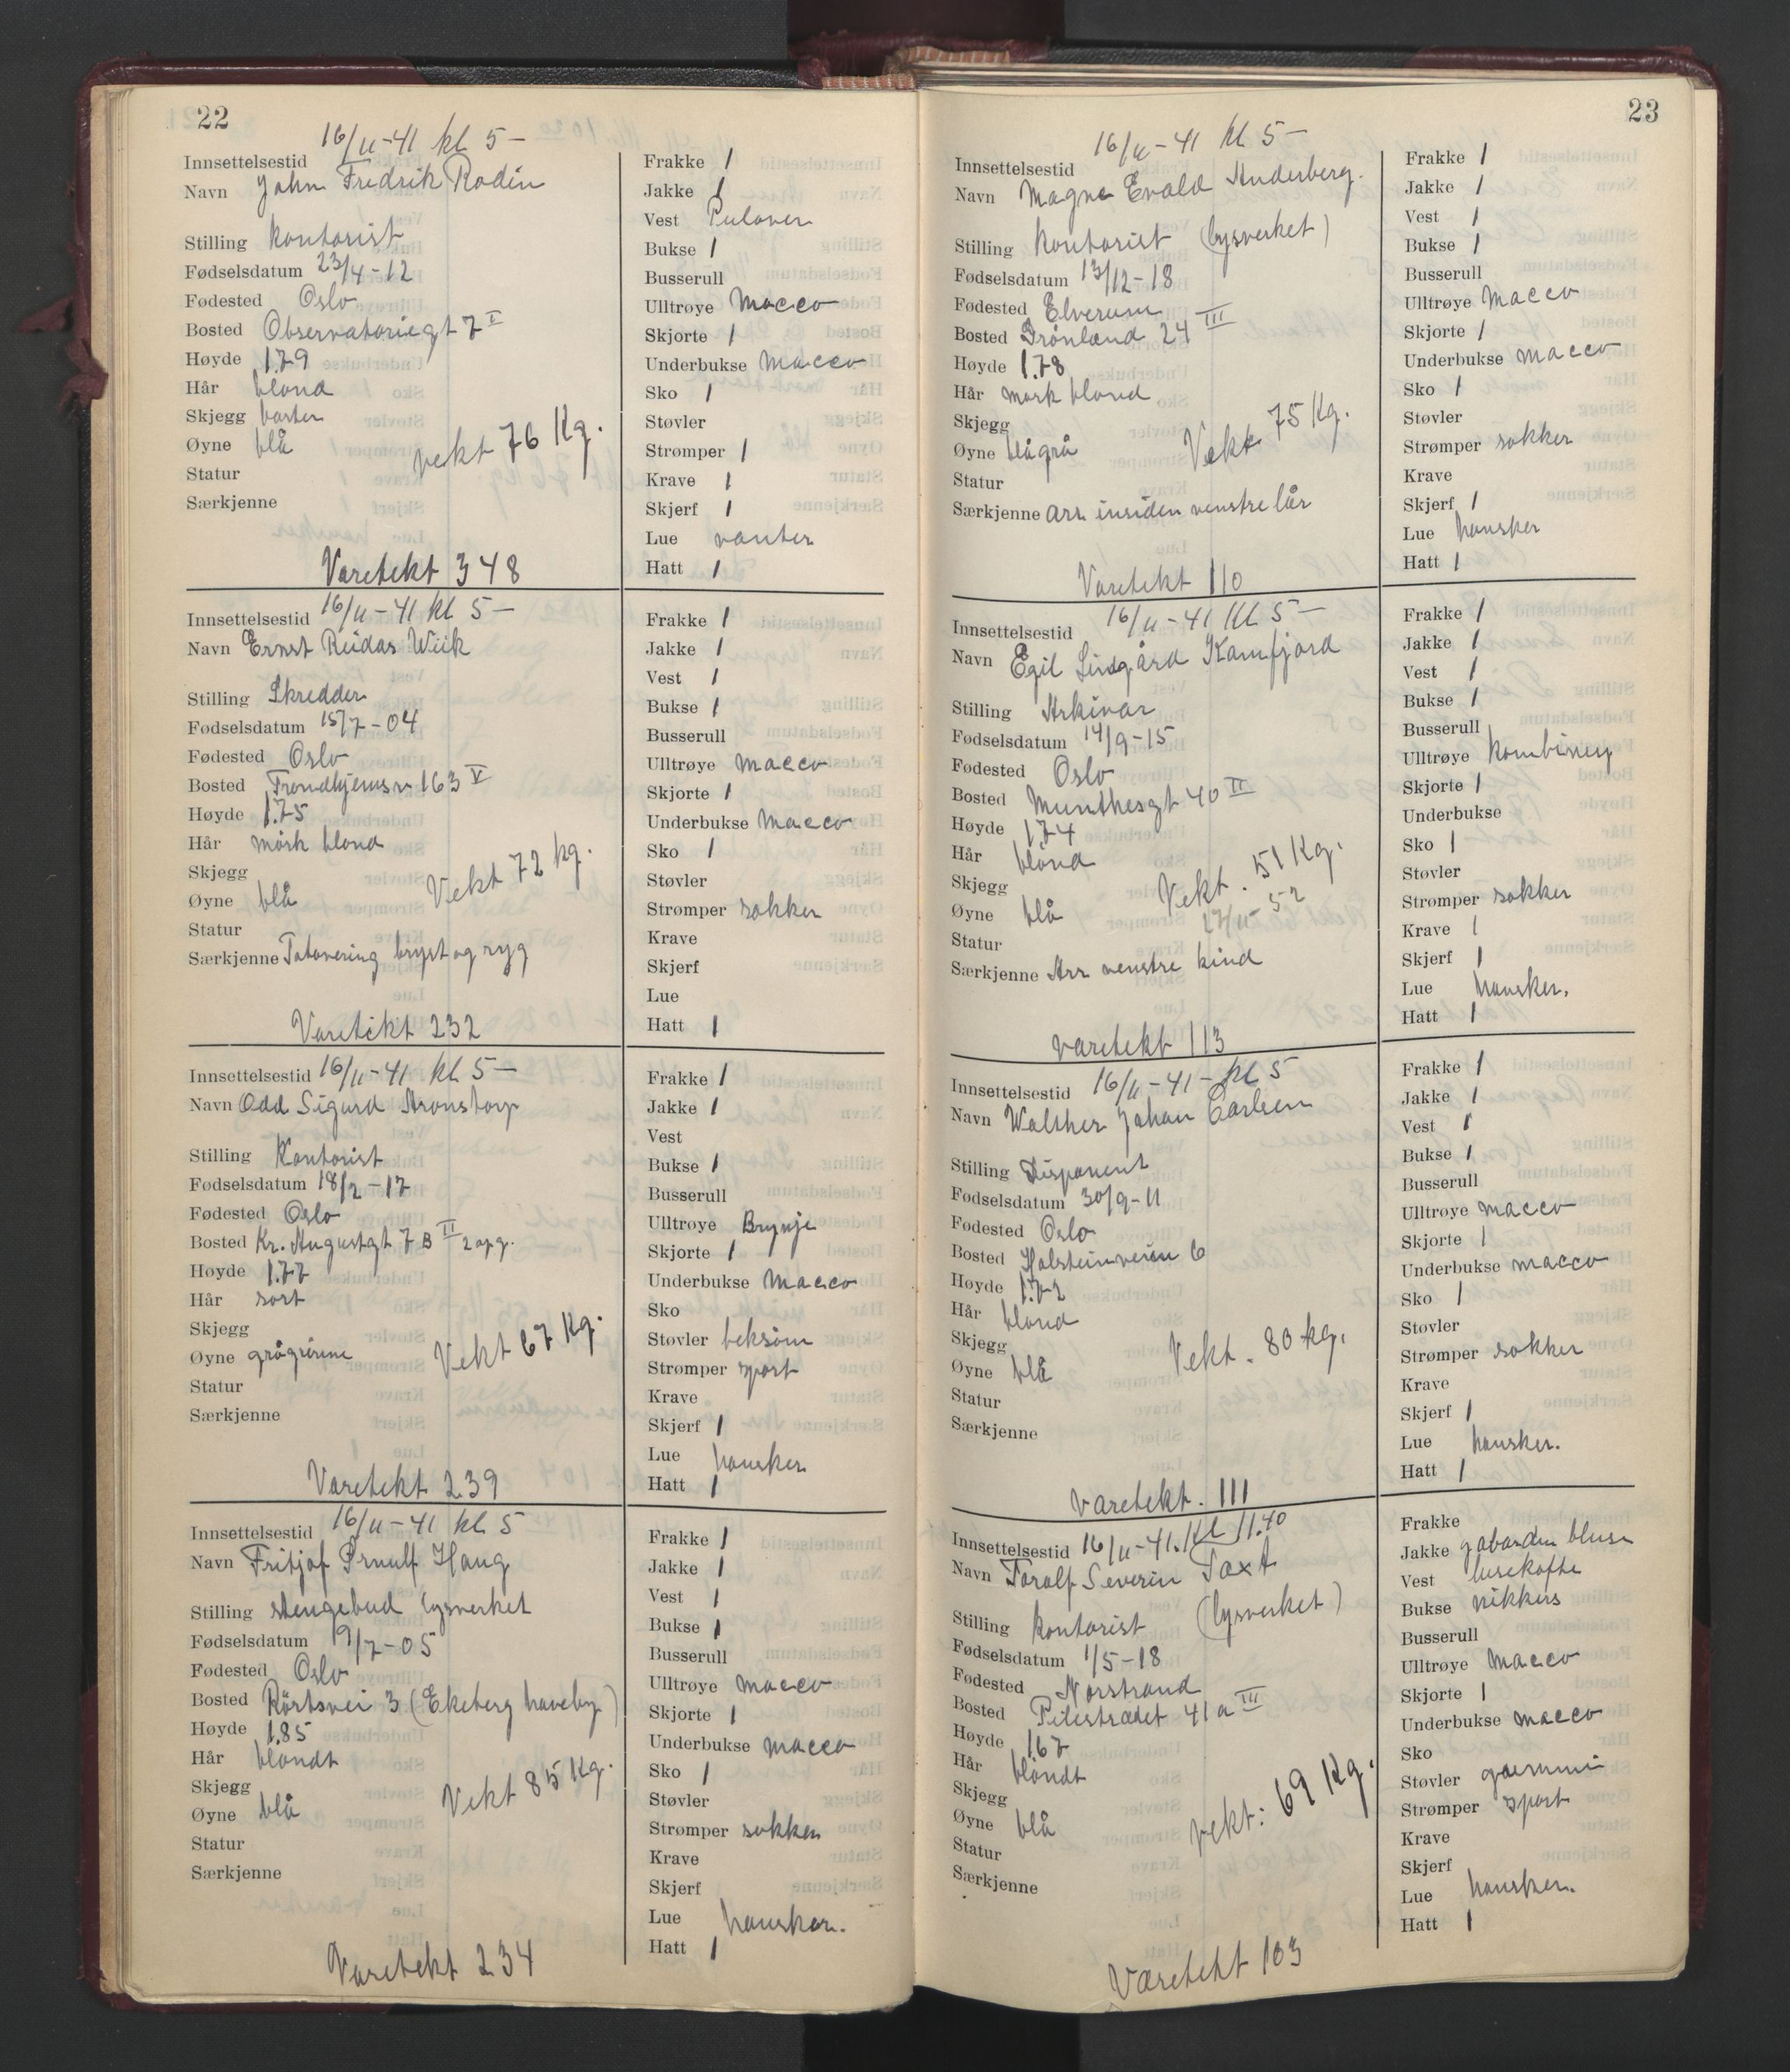 22
Innsettelsestid 16/11-41 kl 5-
Navn John Fredrik Rodin
Stilling kontorist
Fødselsdatum 23/4-12
Fødested Oslo
Bosted Observatoriegt 7 I
Høyde 1.79
Hår blond
Skjegg barter
Øyne blå
vekt 76 Kg.
Statur
Særkjenne
Varetekt 348
Frakke 1
Jakke 1
Vest Pulover
Bukse 1
Busserull
Ulltrøye Macco
Skjorte 1
Underbukse Macco
Sko 1
Støvler
Strømper 1
Krave 1
Skjerf 1
Lue vanter
Hatt 1
Innsettelsestid 16/11-41 kl 5-
Navn Ernst Reidar Wiik
Stilling Skredder
Fødselsdatum 15/7-04
Fødested Oslo
Bosted Trondhjemsv 163 V
Høyde 1.75
Hår mørk blond
Skjegg
Øyne blå
Vekt 72 kg.
Statur
Særkjenne Tatovering bryst og ryg
Varetekt 232
Frakke 1
Jakke 1
Vest 1
Bukse 1
Busserull
Ulltrøye Macco
Skjorte 1
Underbukse Macco
Sko 1
Støvler
Strømper sokker
Krave
Skjerf
Lue
Hatt 1
Innsettelsestid 16/11-41 kl 5-
Navn Odd Sigurd Aronstorp
Stilling Kontorist
Fødselsdatum 18/2-17
Fødested Oslo
Bosted Kr. Augustgt 7 B II 2 opg.
Høyde 1.77
Hår sort
Skjegg
Øyne grågrønne
Vekt 67 Kg.
Statur
Særkjenne
Varetekt 239
Frakke 1
Jakke 1
Vest
Bukse 1
Busserull
Ulltrøye Brynje
Skjorte 1
Underbukse Macco
Sko
Støvler beksøm
Strømper sport
Krave
Skjerf 1
Lue hansker
Hatt 1
Innsettelsestid 16/11-41 kl 5
Navn Fritjof Ørnulf Haug
Stilling stengebud lysverket
Fødselsdatum 19/7-05
Fødested Oslo
Bosted 3 (Ekeberg haveby)
Høyde 1.85
Hår blondt
Skjegg
Øyne blå
Vekt 85 Kg.
Statur
Særkjenne
Varetekt 234
Frakke 1
Jakke 1
Vest 1
Bukse 1
Busserull
Ulltrøye Macco
Skjorte 1
Underbukse Macco
Sko 1
Støvler
Strømper sokker
Krave
Skjerf
Lue hansker.
Hatt 1
23
Innsettelsestid 16/11-41 kl 5-
Navn Magne Evald Anderberg.
Stilling Kontorist (lysverket)
Fødselsdatum 13/12-18
Fødested Elverum
Bosted Grønland 24 III
Høyde 1.78
Hår mørk blond
Skjegg
Øyne blågrå
Vekt 75 Kg.
Statur
Særkjenne Arr insiden venstre lår
Varetekt 110
Frakke 1
Jakke 1
Vest 1
Bukse 1
Busserull
Ulltrøye Macco
Skjorte 1
Underbukse Macco
Sko 1
Støvler
Strømper sokker
Krave
Skjerf 1
Lue hansker
Hatt 1
Innsettelsestid 16/11-41 Kl 5-
Navn Egil Lindgård Kamfjord
Stilling Arkivar
Fødselsdatum 14/9-15
Fødested Oslo
Bosted Munthesgt 40 II
Høyde 174
Hår blond
Skjegg
Vekt. 51 Kg.
Øyne blå
17/11- 52
Statur
Særkjenne Arr venstre kind
varetekt 113
Frakke 1
Jakke 1
Vest 1
Bukse 1
Busserull
Ulltrøye Kombiney
Skjorte 1
Underbukse
Sko 1
Støvler
Strømper sokker
Krave 1
Skjerf 1
Lue hansker.
Hatt 1
Innsettelsestid 16/11-41- kl 5
Navn Walther Johan Carlsen
Stilling Disponent
Fødselsdatum 30/9-11
Fødested Oslo
Bosted Holsteinveien 6
Høyde 1.72
Hår blond
Skjegg
Øyne blå
Vekt. 80 kg.
Statur
Særkjenne
varetekt. 111
Frakke 1
Jakke 1
Vest 1
Bukse 1
Busserull
Ulltrøye Macco
Skjorte 1
Underbukse Macco
Sko 1
Støvler
Strømper sokker
Krave
Skjerf 1
Lue hansker.
Hatt 1
Innsettelsestid 16/11-41. Kl 11.40
Navn Toralf Severin Taxt
Stilling kontorist (lysverket)
Fødselsdatum 1/5-18
Fødested Norstrand
Bosted Pilestrædet 41 a III
Høyde 167
Hår blondt
Skjegg
Øyne blå
vekt: 69 Kg.
Statur
Særkjenne
Varetekt 103
Frakke
Jakke gabardin bluse
Vest lusekofte
Bukse nikkers
Busserull
Ulltrøye Macco
Skjorte 1
Underbukse Macco
Sko
Støvler gummi
Strømper sport
Krave
Skjerf
Lue hansker.
Hatt 1